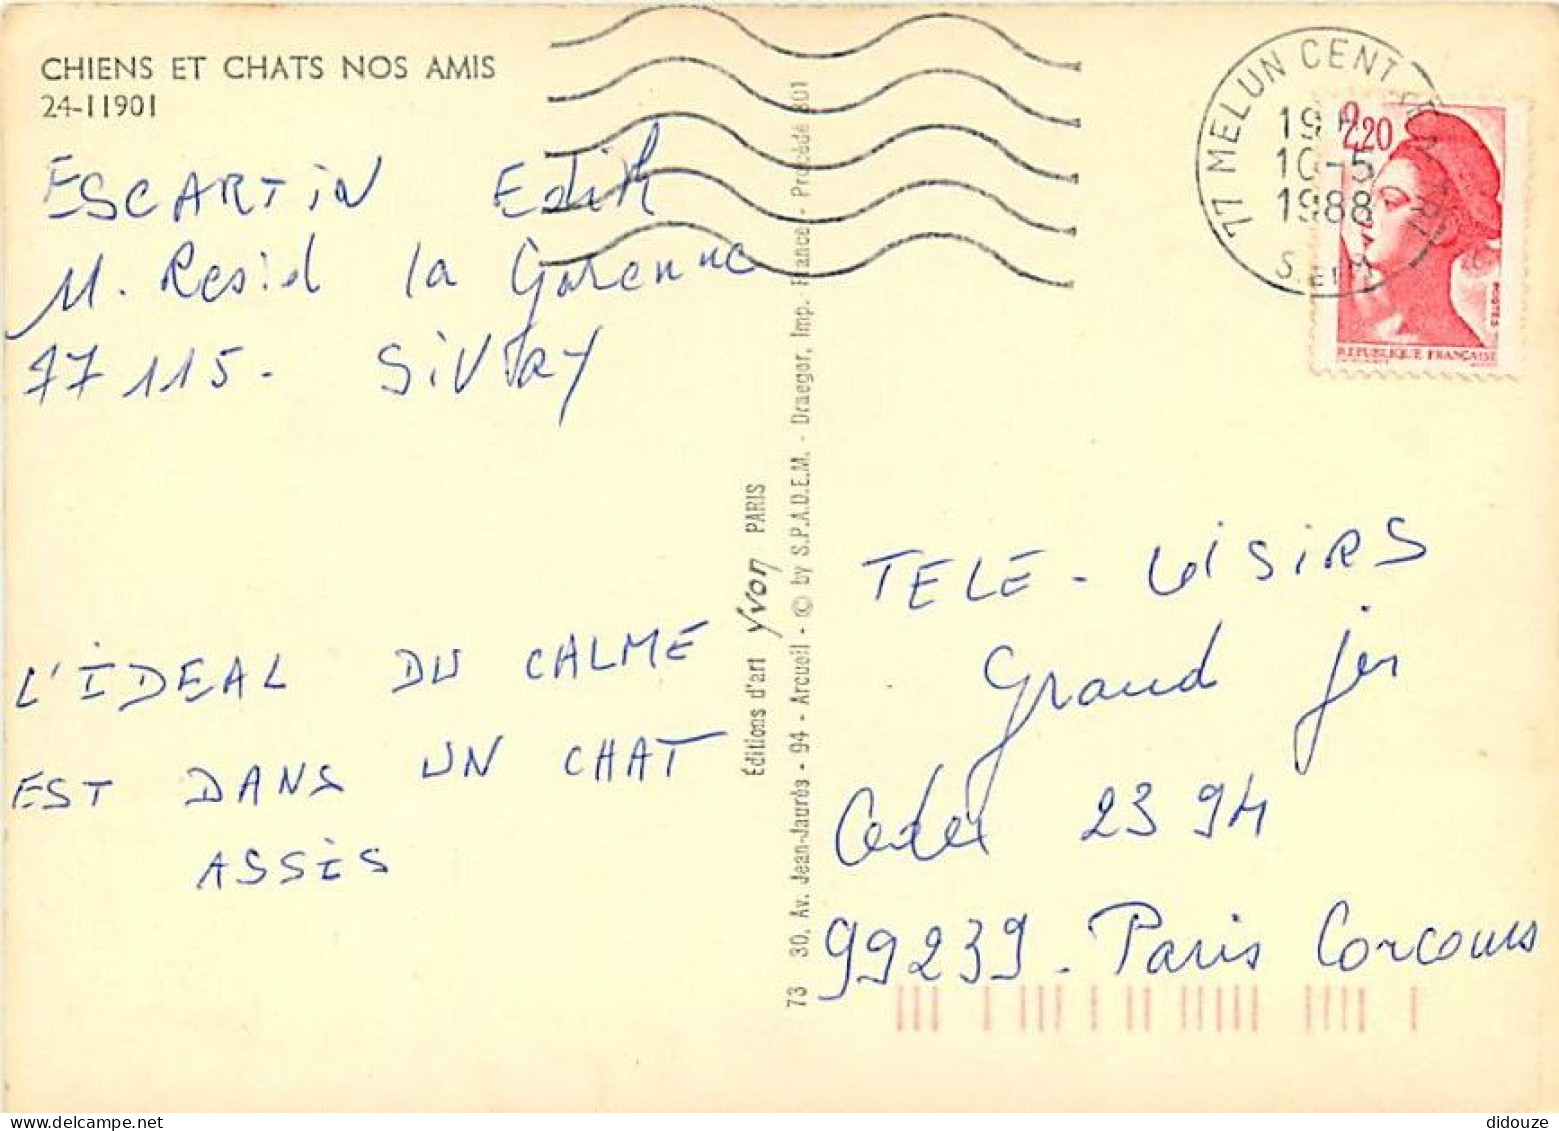 CHIENS ET CHATS NOS AMIS
24-11901
ESCARTIN Edith
11. Resid la Garenne
77115. SIVRY
L'IDEAL DU CALME
EST DANS UN CHAT
ASSÈS
Éditions d'art Yvon PARIS
73 30, Av. Jean-Jaurès - 94 - Arcueil - © by S.P.A.D.E.M. - Draeger, Imp. France - Procédé 801
77 MELUN CENTRE
19 H
10-5
1988
2,20
POSTES
REPUBLIQUE FRANÇAISE
TELE - LOISIRS
Grand jeu
Cedex 2394
99239 - Paris Concours
didouze
delcampe.net